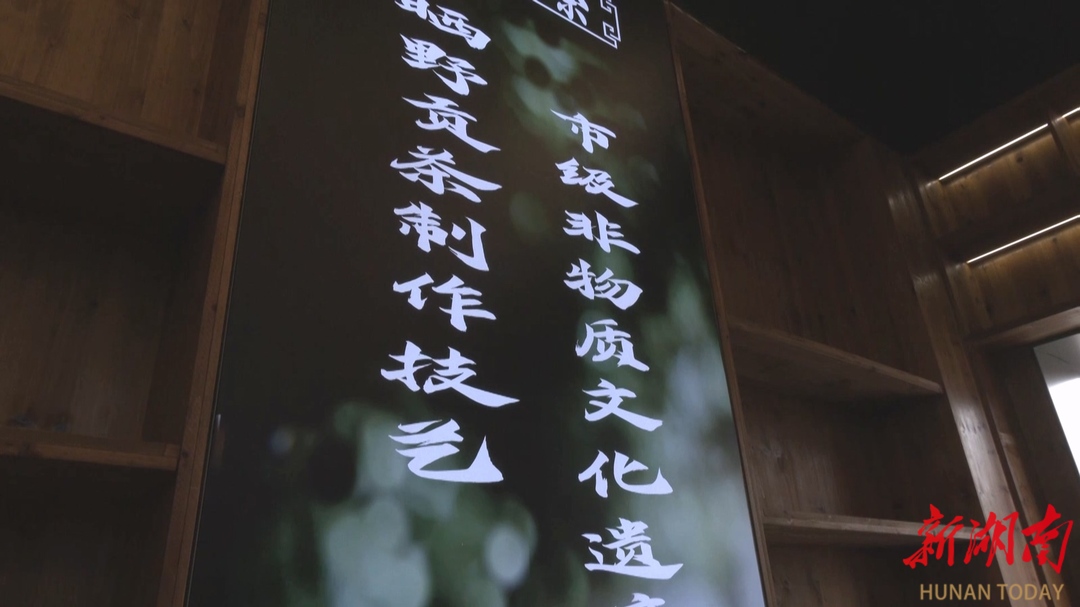 市级非物质文化遗
晒野贡茶制作技艺
新湖南
HUNAN TODAY